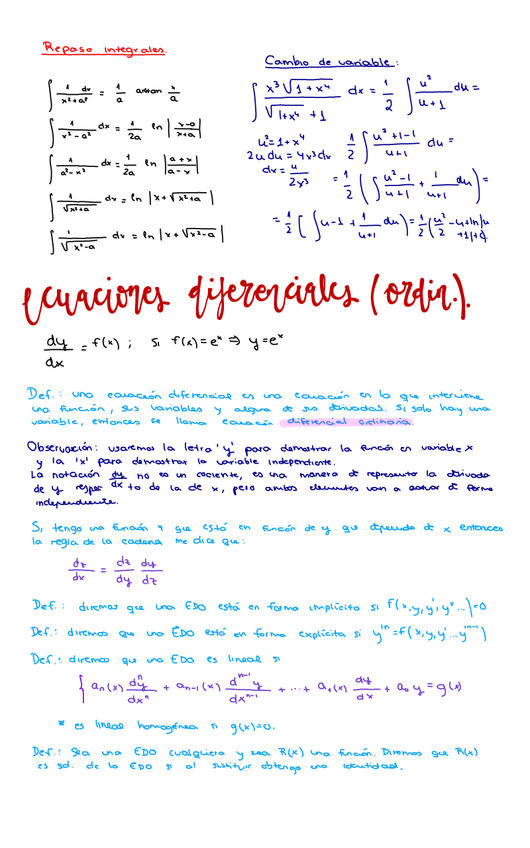 Repaso integrales.
∫ 1 dx / x²+a² = 1/a arctan x/a
∫ 1 / x²-a² dx = 1/2a ln |x-a / x+a|
∫ 1 / a²-x² dx = 1/2a ln |a+x / a-x|
∫ 1 / √x²+a dx = ln |x+√x²+a|
∫ 1 / √x²-a dx = ln |x+√x²-a|
Cambio de variable:
∫ x³√1+x⁴ / √1+x⁴ +1 dx = 1/2 ∫ u² / u+1 du =
u²=1+x⁴
2u du = 4x³dx
dx = u / 2x³
1/2 ∫ u²+1-1 / u+1 du =
= 1/2 ( ∫ u²-1 / u+1 + 1 / u+1 du ) =
= 1/2 [ ∫ u-1 + 1 / u+1 du ) = 1/2 ( u²/2 -u+ln|u
+1|+C)
ecuaciones diferenciales (ordin.).
dy/dx = f(x) ; si f(x)=eˣ ⇒ y=eˣ
Def.: una ecuación diferencial es una ecuación en la que interviene
una función, sus variables y alguna de sus derivadas. Si solo hay una
variable, entonces se llama ecuación diferencial ordinaria.
Observación: usaremos la letra 'y' para demostrar la función en variable x
y la 'x' para demostrar la variable independiente.
La notación dy/dx no es un cociente, es una manera de representar la derivada
de y respecto de la de x, pero ambos elementos van a actuar de forma
independiente.
Si tengo una función z que está en función de y que depende de x entonces
la regla de la cadena me dice que:
dz/dx = dz/dy dy/dz
Def.: diremos que una EDO está en forma implícita si F(x,y,y',y''...)=0
Def.: diremos que una EDO está en forma explícita si y'ⁿ=F(x,y,y'...yⁿ⁻¹)
Def.: diremos que una EDO es lineal si
{ aₙ(x) dyⁿ/dxⁿ + aₙ₋₁(x) dⁿ⁻¹y/dxⁿ⁻¹ + ... + a₁(x) dy/dx + a₀ y = g(x)
* es lineal homogénea si g(x)=0.
Def.: Sea una EDO cualquiera y sea R(x) una función. Diremos que R(x)
es sol. de la EDO si al sustituir obtengo una identidad.